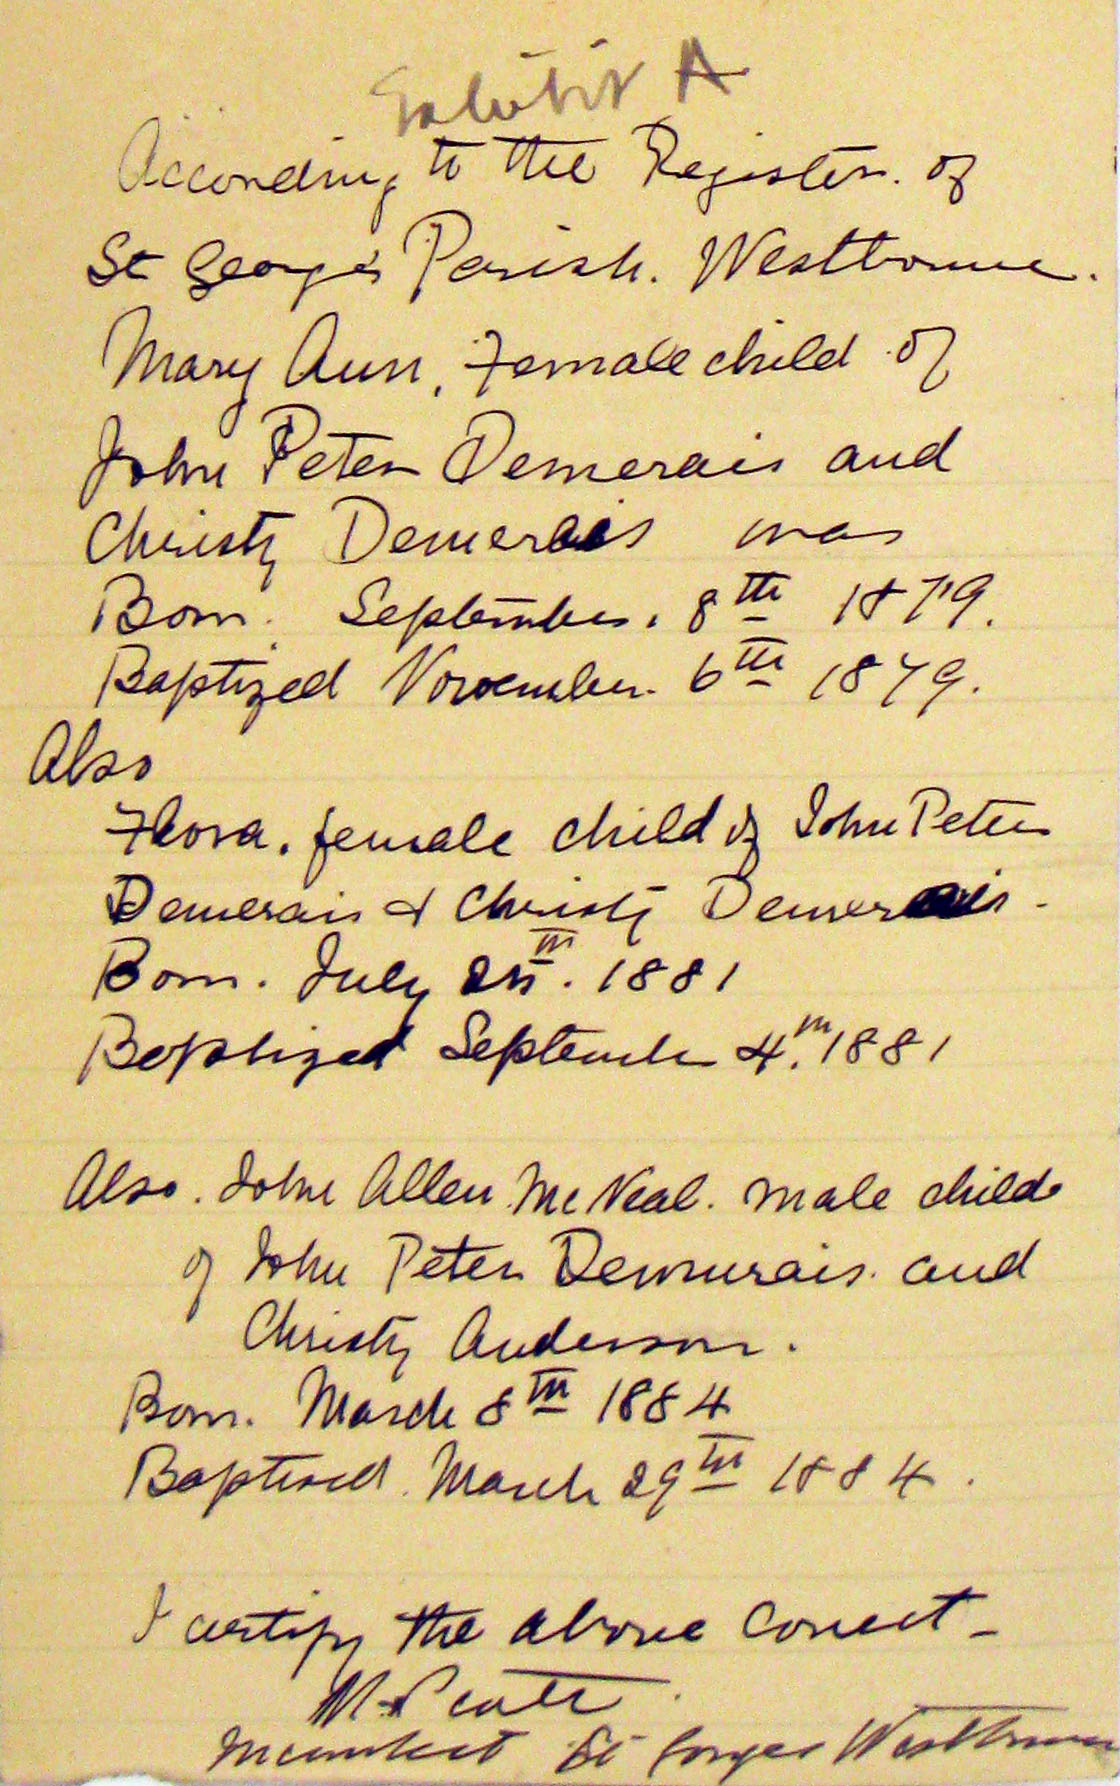 Exhibit A
According to the Register. of
St George's Parish. Westbourne.
Mary Ann, Female child of
John Peter Demerais and
Christy Demerais was
Born. September. 8th 1879.
Baptized November. 6th 1879.
Also
Flora. female child of John Peter
Demerais & Christy Demerais -
Born. July 25th. 1881
Baptized September 4.th 1881
Also. John Allen McNeal. male child
of John Peter Demurais. and
Christy Anderson.
Born. March 8th 1884
Baptised. March 29th 1884.
I certify the above correct -
M. Scott.
Incumbent St Georges Westbourne